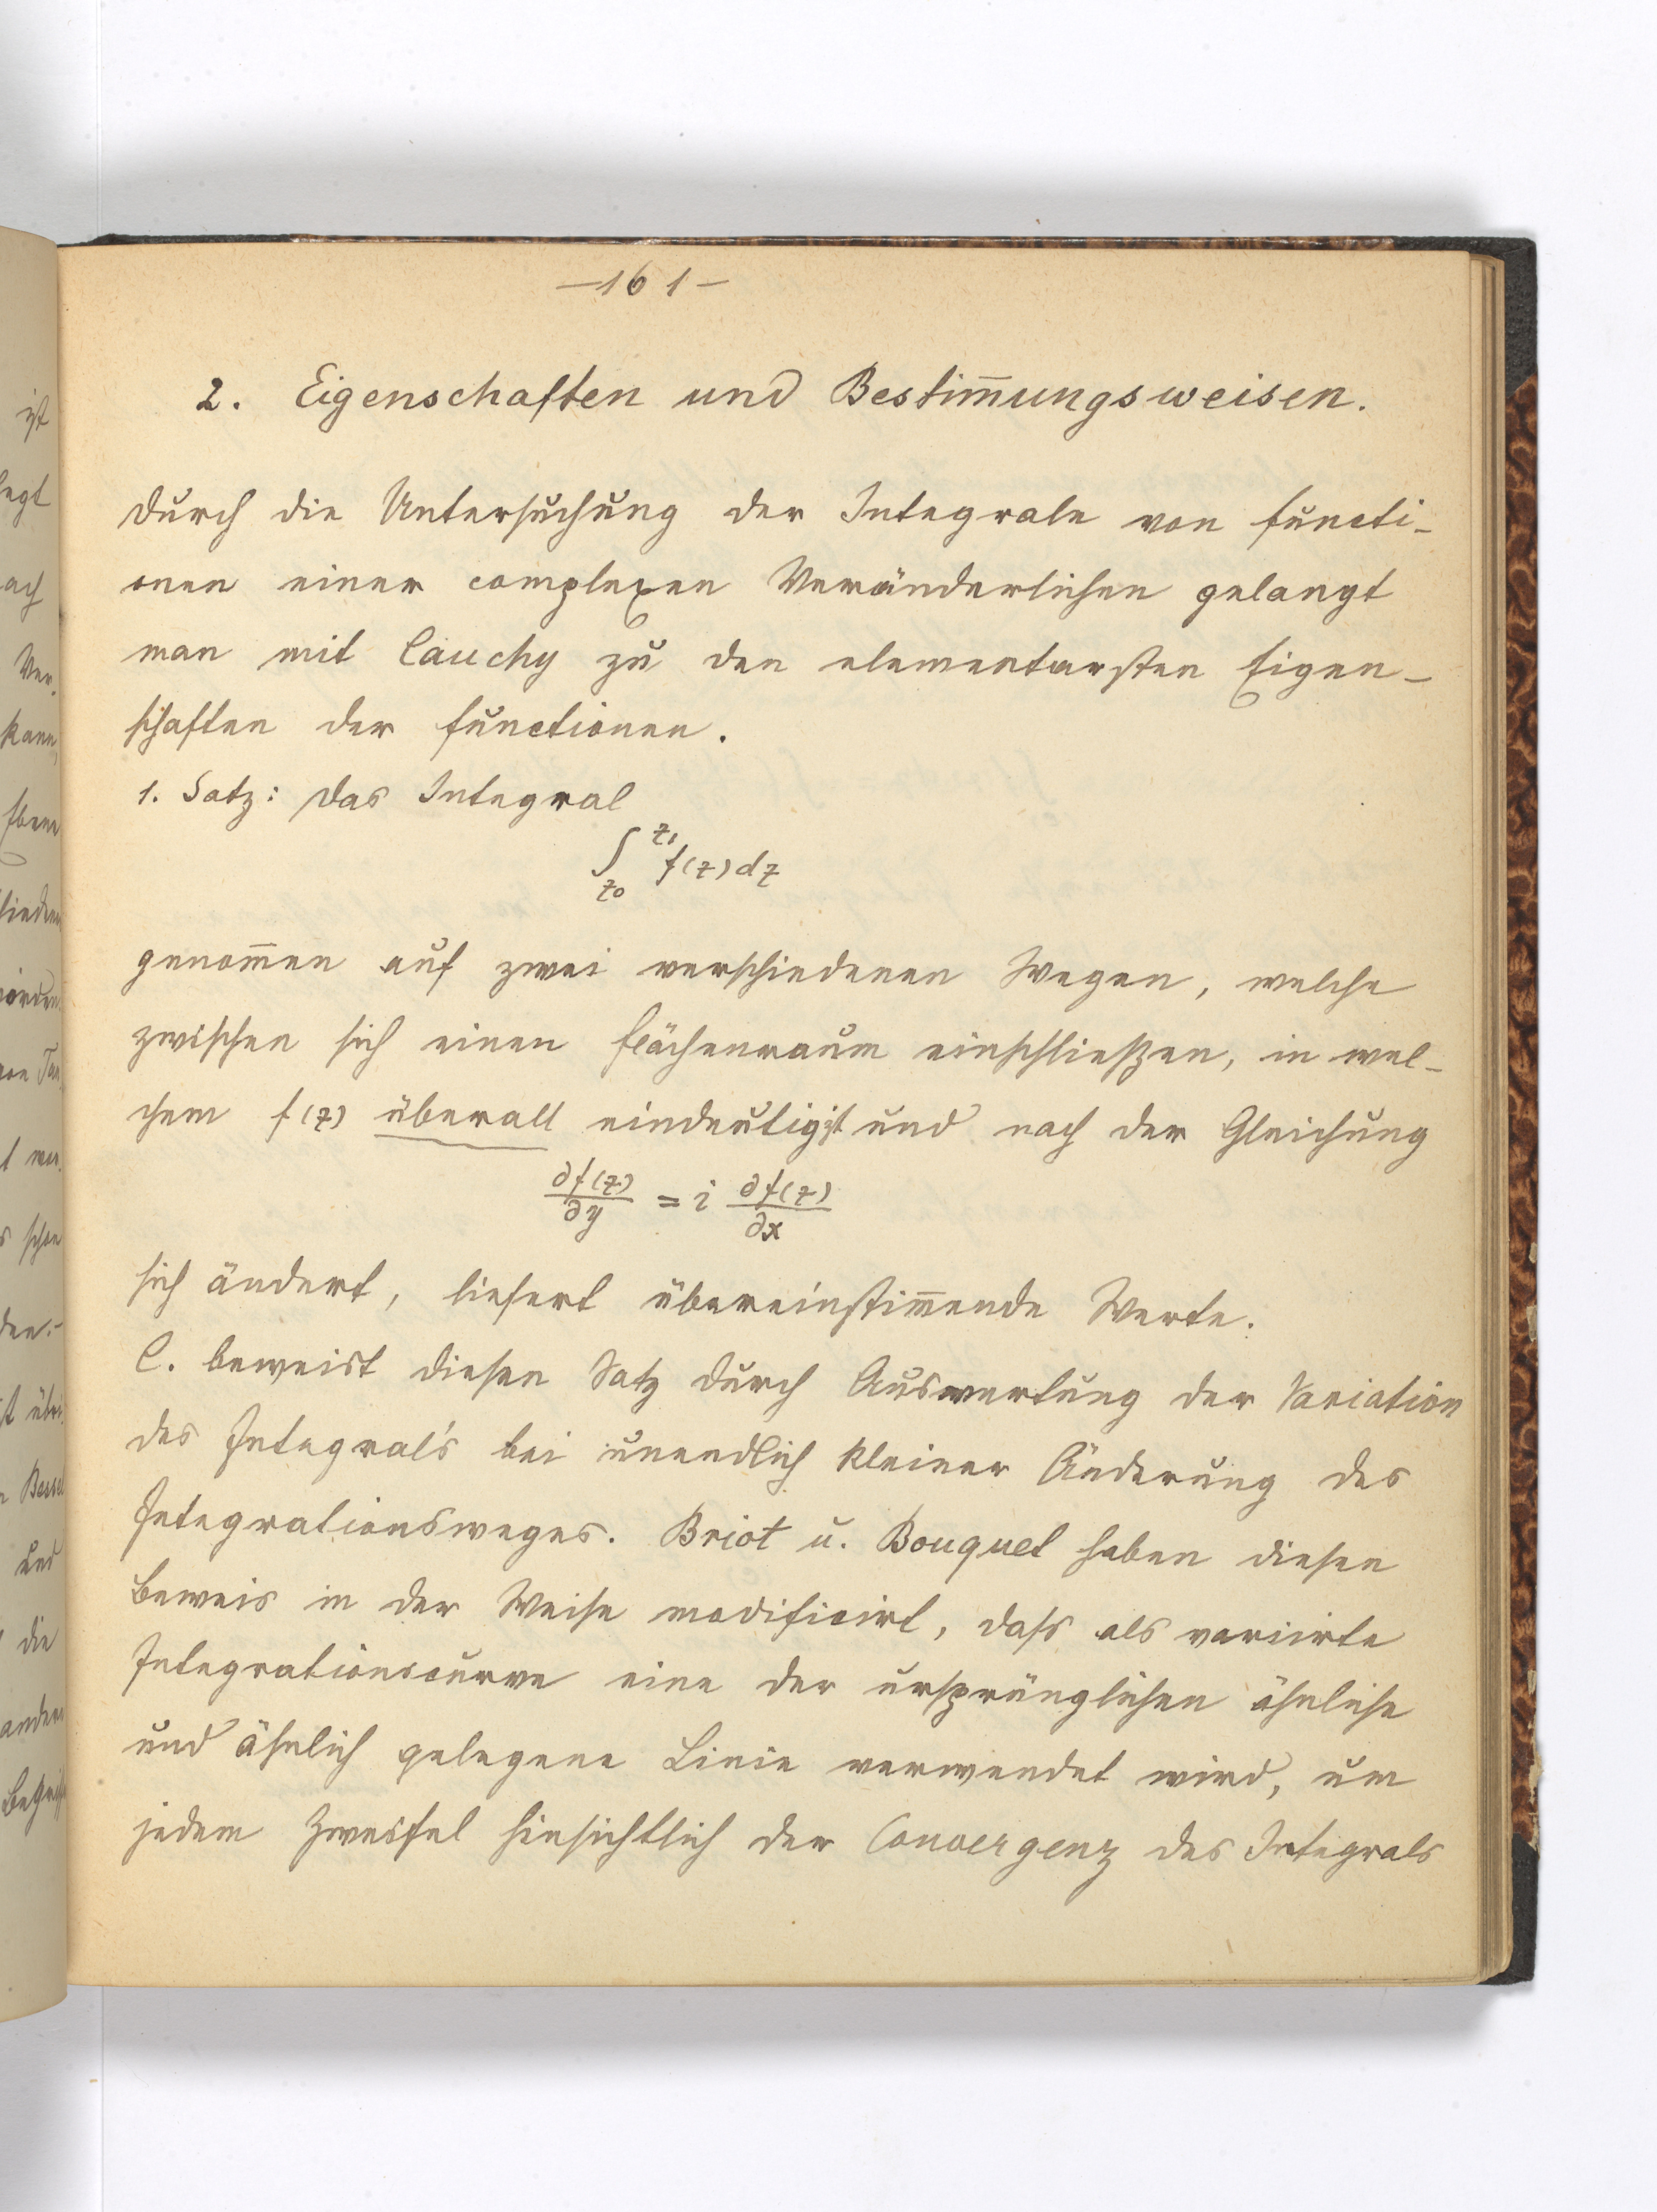 —161—
2. Eigenschaften und Bestim̄ungsweisen.
Durch die Untersuchung der Integrale von Functi-
onen einer complexen Veränderlichen gelangt
man mit Cauchy zu den elementarsten Eigen-
schaften der Functionen.
1. Satz: Das Integral
∫_{z₀}^{z₁} f(z)dz
genom̄en auf zwei verschiedenen Wegen, welche
zwischen sich einen Flächenraum einschließen, in wel-
chem f(z) überall eindeutig ist und nach der Gleichung
∂f(z)/∂y = i ∂f(z)/∂x
sich ändert, liefert übereinstim̄ende Werte.
C. beweist diesen Satz durch Auswertung der Variation
des Integral's bei unendlich kleiner Änderung des
Integrationsweges. Briot u. Bouquet haben diesen
Beweis in der Weise modificirt, dass als variirte
Integrationscurve eine der ursprünglichen ähnliche
und ähnlich gelegene Linie verwendet wird, um
jedem Zweifel hinsichtlich der Convergenz des Integrals
ist
ach
Ver-
kann,
Ebene
schon
Bessel
und
die